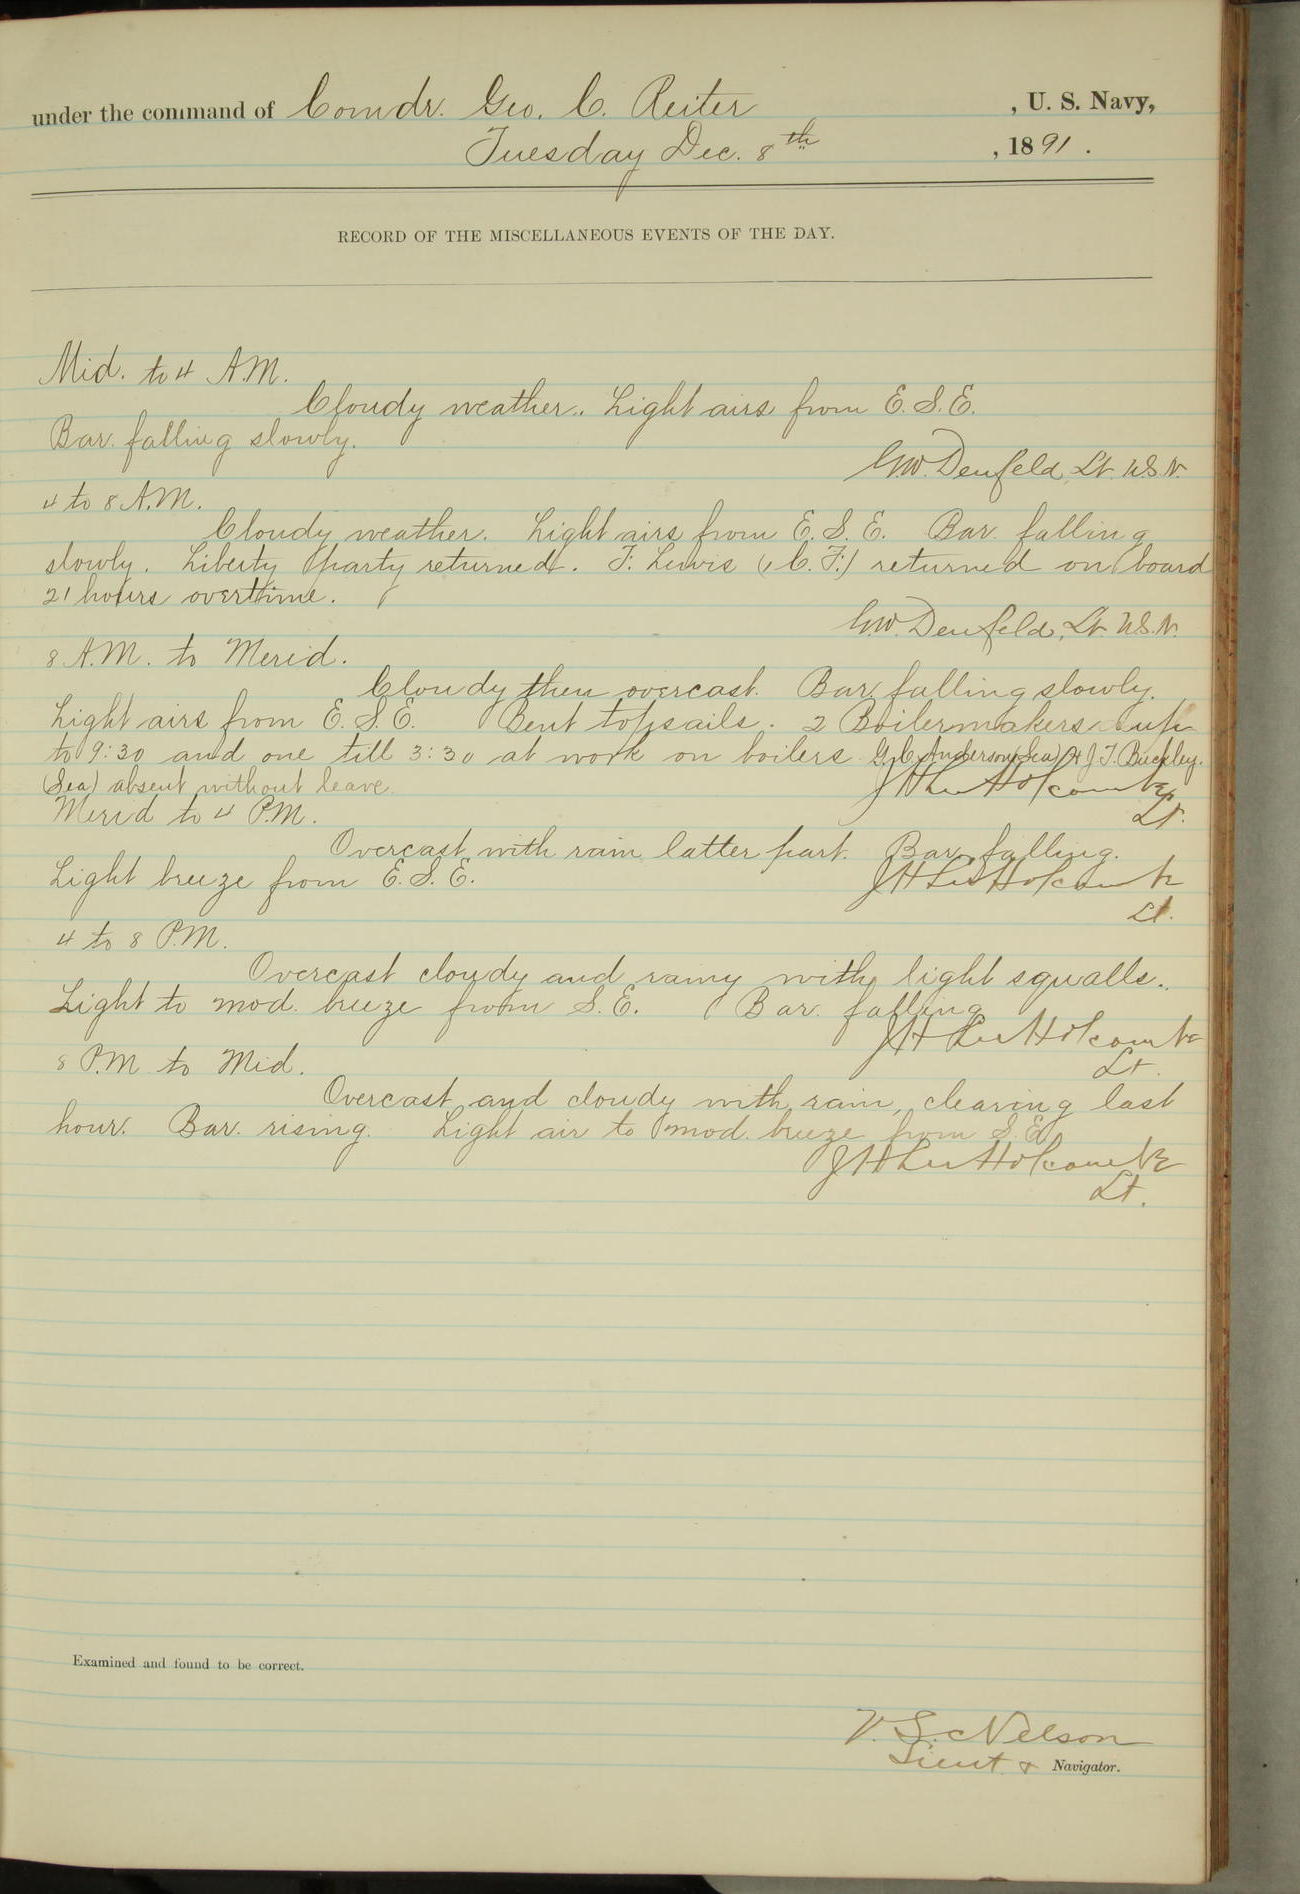 under the command of Comdr. Geo. C. Reiter , U. S. Navy,
Tuesday Dec. 8th , 1891 .
RECORD OF THE MISCELLANEOUS EVENTS OF THE DAY.
Mid. to 4 A.M.
Cloudy weather. Light airs from E.S.E.
Bar. falling slowly.
G.W. Denfeld, Lt. U.S.N.
4 to 8 A.M.
Cloudy weather. Light airs from E.S.E. Bar. falling
slowly. Liberty party returned. F. Lewis (C.F.) returned on board
21 hours overtime.
G.W. Denfeld, Lt. U.S.N.
8 A.M. to Merid.
Cloudy then overcast. Bar. falling slowly.
Light airs from E.S.E. Bent topsails. 2 Boilermakers up
to 9:30 and one till 3:30 at work on boilers G.C. Anderson (Sea) & J.T. Buckley.
(Sea) absent without leave.
J H Lee Holcombe
Lt.
Merid to 4 P.M.
Overcast with rain latter part. Bar. falling.
Light breeze from E.S.E.
J H Lee Holcombe
Lt.
4 to 8 P.M.
Overcast cloudy and rainy with light squalls.
Light to mod. breeze from S.E. Bar. falling
J H Lee Holcombe
Lt.
8 P.M to Mid.
Overcast and cloudy with rain, clearing last
hour. Bar. rising. Light air to mod. breeze from S.E.
J H Lee Holcombe
Lt.
Examined and found to be correct.
V. S. Nelson
Lieut & Navigator.